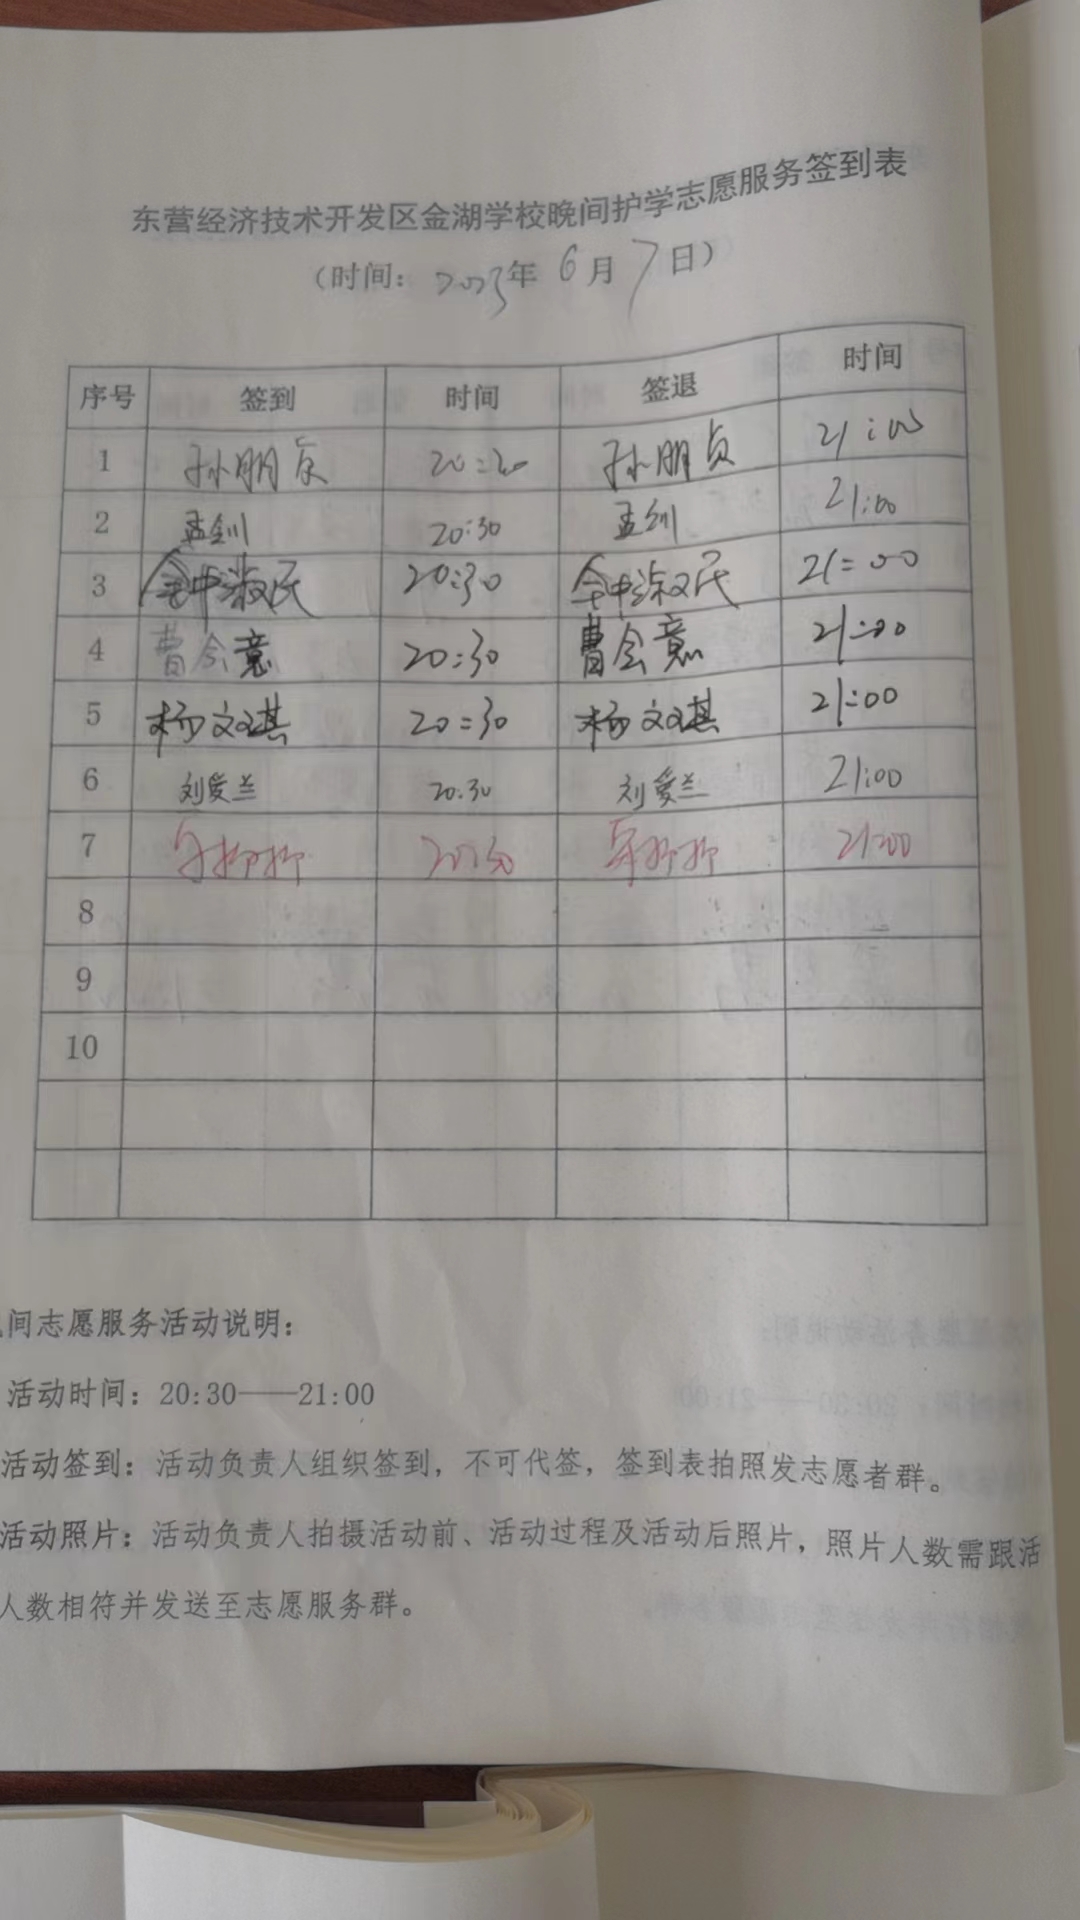 东营经济技术开发区金湖学校晚间护学志愿服务签到表
（时间：2023年 6月 7日）
序号 签到 时间 签退 时间
1 孙朋贞 20:30 孙朋贞 21:00
2 孟钊 20:30 孟钊 21:00
3 20:30 21:00
4 曹会意 20:30 曹会意 21:00
5 杨文琪 20:30 杨文琪 21:00
6 刘爱兰 20:30 刘爱兰 21:00
7 21:00
8
9
10
间志愿服务活动说明：
活动时间：20:30——21:00
活动签到：活动负责人组织签到，不可代签，签到表拍照发志愿者群。
活动照片：活动负责人拍摄活动前、活动过程及活动后照片，照片人数需跟活
人数相符并发送至志愿服务群。